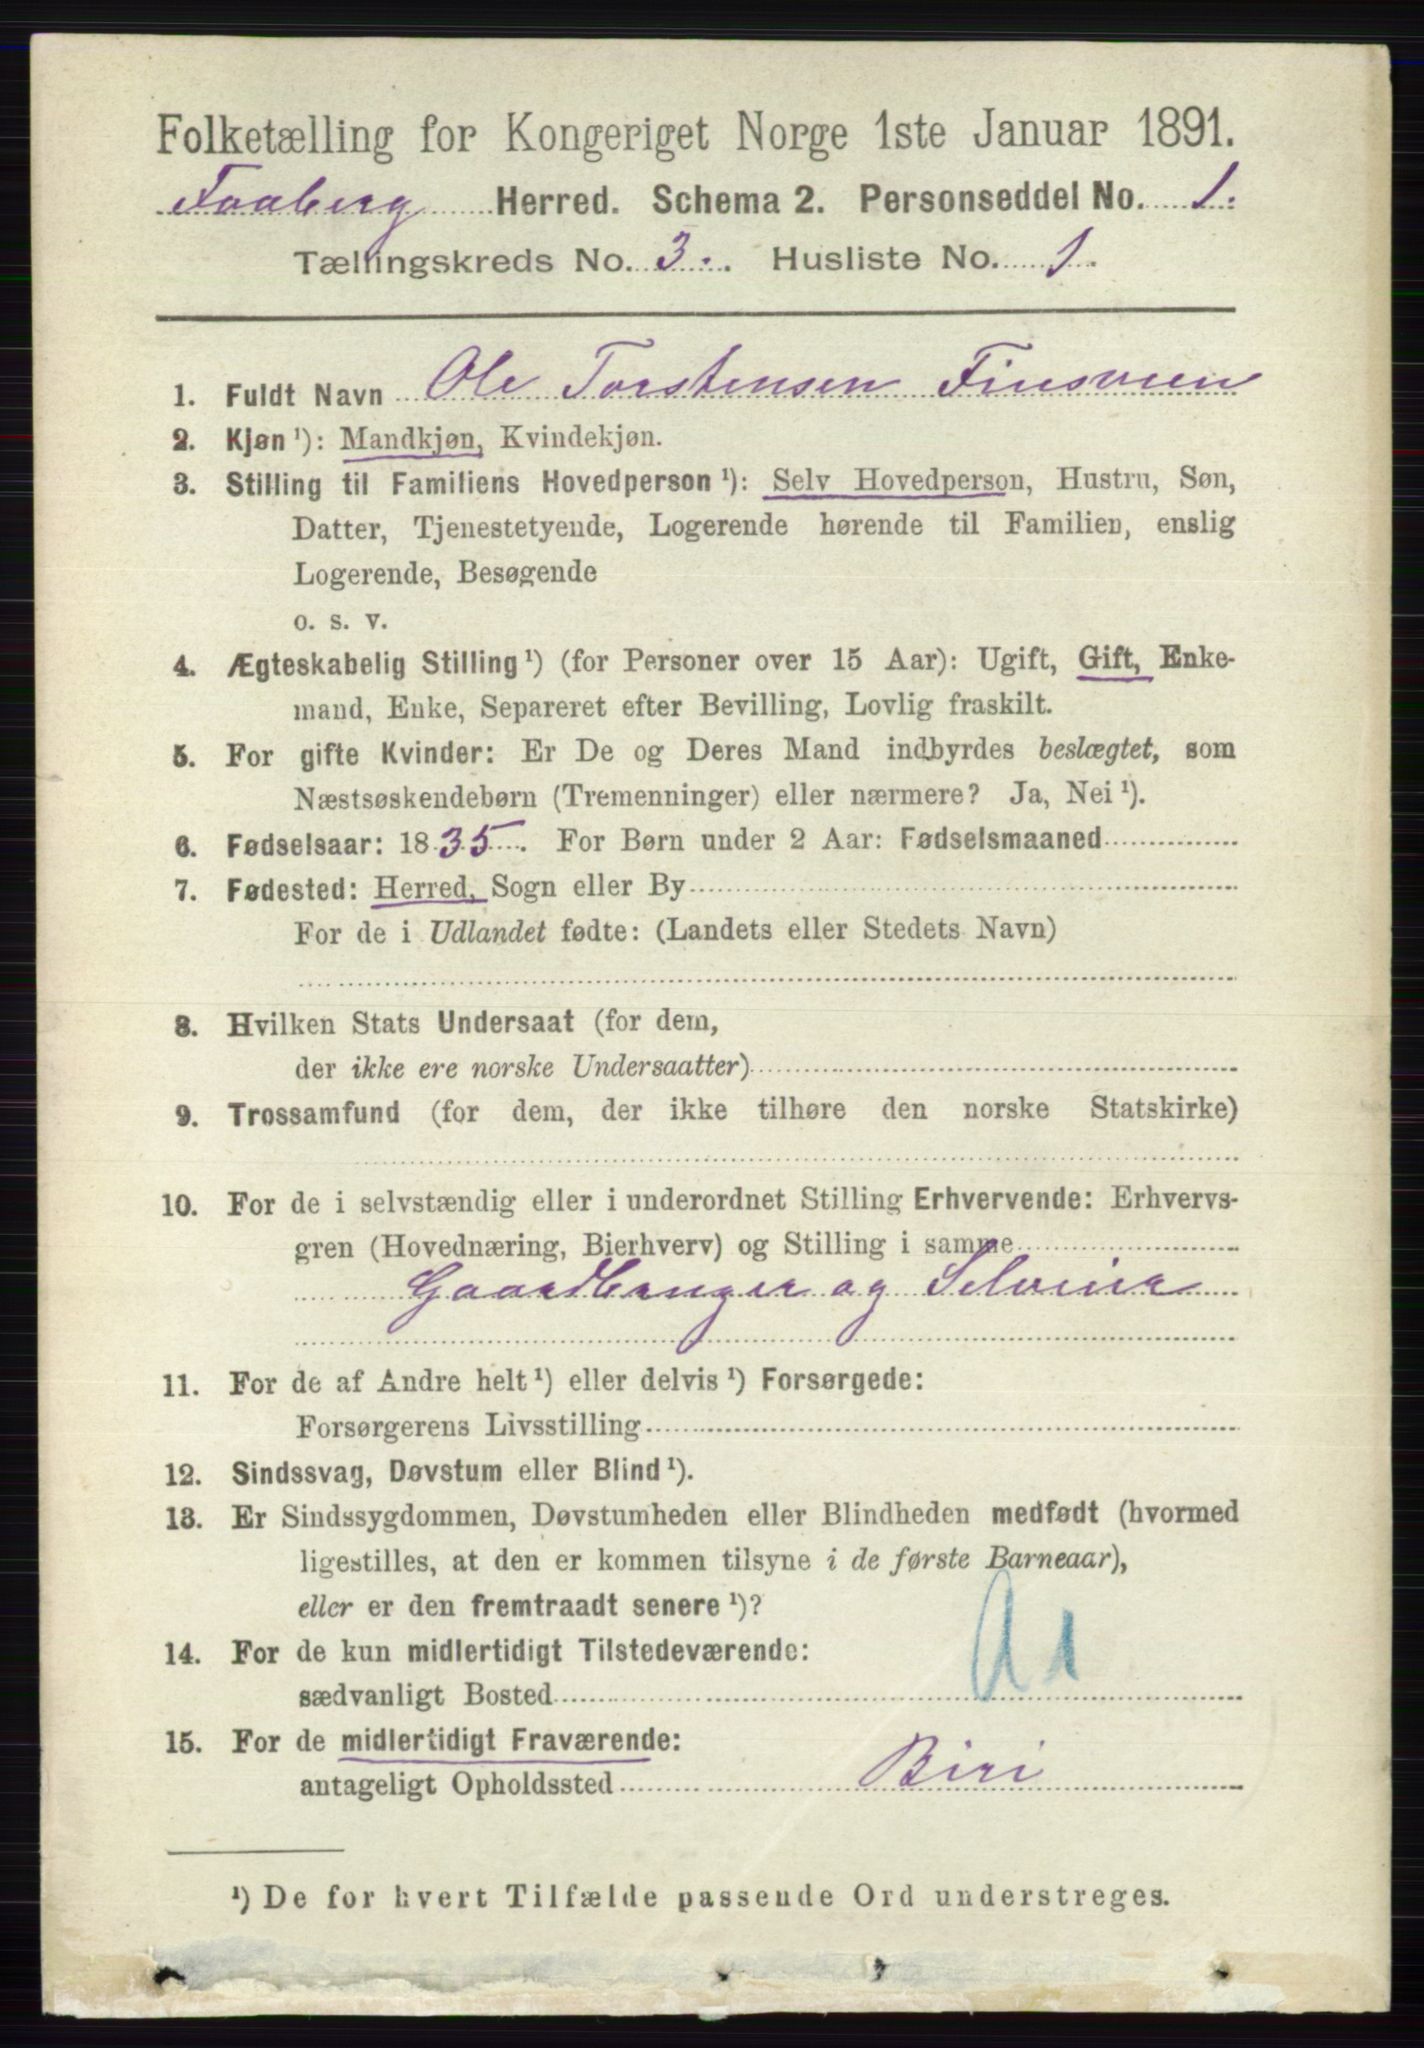 Folketælling for Kongeriget Norge 1ste Januar 1891.
Faaberg Herred. Schema 2. Personseddel No. 1.
Tællingskreds No. 3. Husliste No. 1.
1. Fuldt Navn Ole Torstensen Finsveen
2. Kjøn ¹): Mandkjøn, Kvindekjøn.
3. Stilling til Familiens Hovedperson ¹): Selv Hovedperson, Hustru, Søn,
Datter, Tjenestetyende, Logerende hørende til Familien, enslig
Logerende, Besøgende
o. s. v.
4. Ægteskabelig Stilling ¹) (for Personer over 15 Aar): Ugift, Gift, Enke-
mand, Enke, Separeret efter Bevilling, Lovlig fraskilt.
5. For gifte Kvinder: Er De og Deres Mand indbyrdes beslægtet, som
Næstsøskendebørn (Tremenninger) eller nærmere? Ja, Nei ¹).
6. Fødselsaar: 1835. For Børn under 2 Aar: Fødselsmaaned
7. Fødested: Herred, Sogn eller By
For de i Udlandet fødte: (Landets eller Stedets Navn)
8. Hvilken Stats Undersaat (for dem,
der ikke ere norske Undersaatter)
9. Trossamfund (for dem, der ikke tilhøre den norske Statskirke)
10. For de i selvstændig eller i underordnet Stilling Erhvervende: Erhvervs-
gren (Hovednæring, Bierhverv) og Stilling i samme
Gaardbruger og Selveier
11. For de af Andre helt ¹) eller delvis ¹) Forsørgede:
Forsørgerens Livsstilling
12. Sindssvag, Døvstum eller Blind ¹).
13. Er Sindssygdommen, Døvstumheden eller Blindheden medfødt (hvormed
ligestilles, at den er kommen tilsyne i de første Barneaar),
eller er den fremtraadt senere ¹)?
14. For de kun midlertidigt Tilstedeværende:
sædvanligt Bosted
15. For de midlertidigt Fraværende:
antageligt Opholdssted Biri
¹) De for hvert Tilfælde passende Ord understreges.